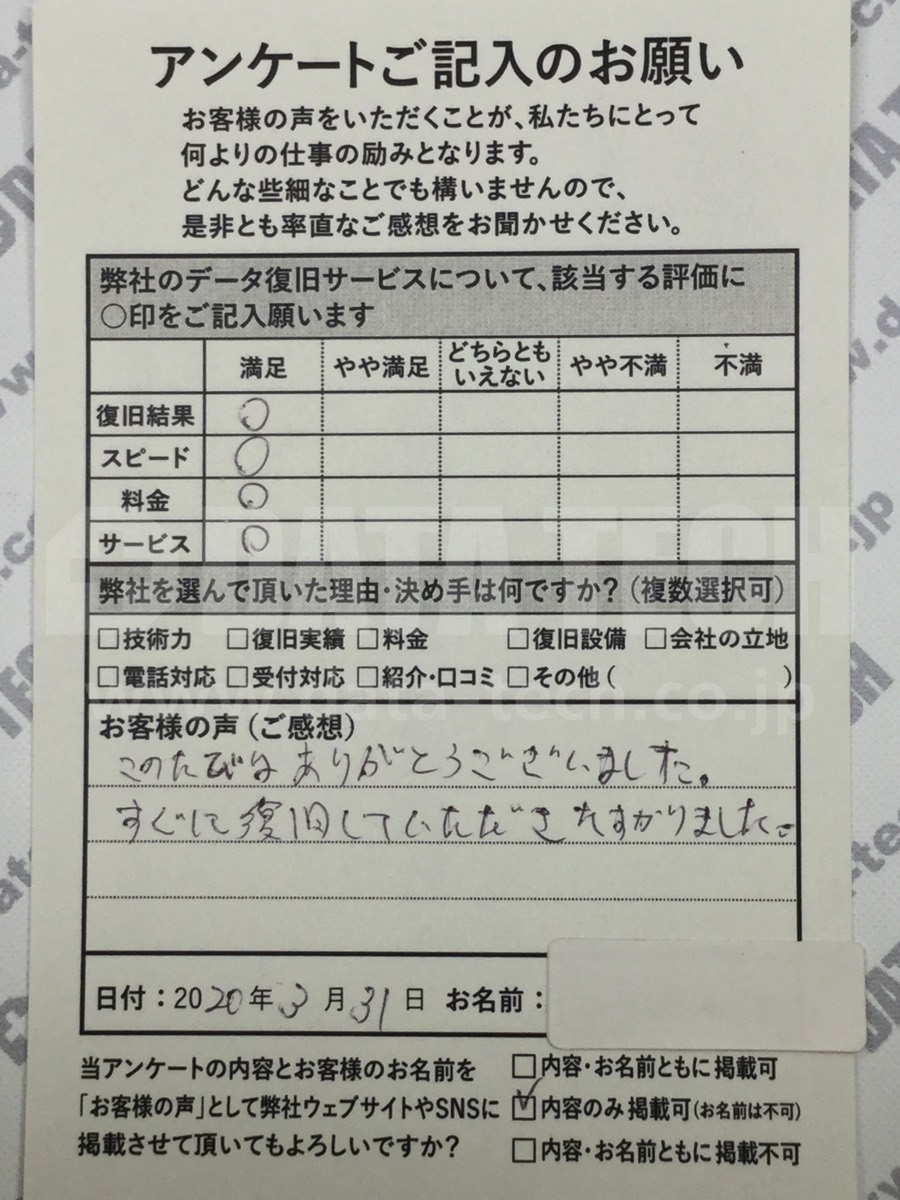 アンケートご記入のお願い
お客様の声をいただくことが、私たちにとって
何よりの仕事の励みとなります。
どんな些細なことでも構いませんので、
是非とも率直なご感想をお聞かせください。
弊社のデータ復旧サービスについて、該当する評価に
〇印をご記入願います
満足 やや満足 どちらとも いえない やや不満 不満
復旧結果 〇
スピード 〇
料金 〇
サービス 〇
DATA TECH
弊社を選んで頂いた理由・決め手は何ですか?(複数選択可)
□技術力 □復旧実績 □料金 □復旧設備 □会社の立地
□電話対応 □受付対応 □紹介・口コミ □その他( )
www.data-tech.co.jp
お客様の声(ご感想)
このたびはありがとうございました。
すぐに復旧していただきたすかりました。
日付:2020年3月31日 お名前:
当アンケートの内容とお客様のお名前を
「お客様の声」として弊社ウェブサイトやSNSに
掲載させて頂いてもよろしいですか?
□内容・お名前ともに掲載可
☑内容のみ掲載可(お名前は不可)
□内容・お名前ともに掲載不可